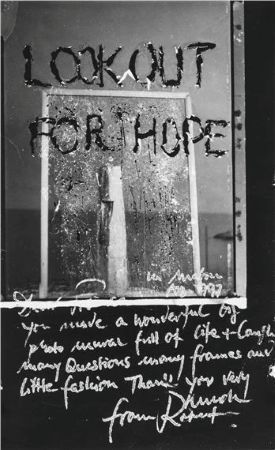 LOOK OUT
FOR HOPE
in
Dear
you made a wonderful big
photo full of life +
many Questions many frames and
little fashion Thank you very
much
from Robert